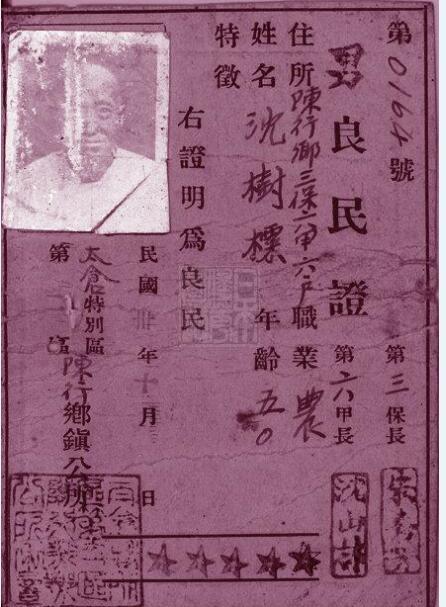 第0164號
男
良民證
第三保長
第六甲長
沈山
住所陳行鄉三保六甲六戶職業農
姓名沈樹樸年齡五〇
特徵
右證明爲良民
民國卅年十二月 日
太倉特別區
第 區陳行鄉鎮公所